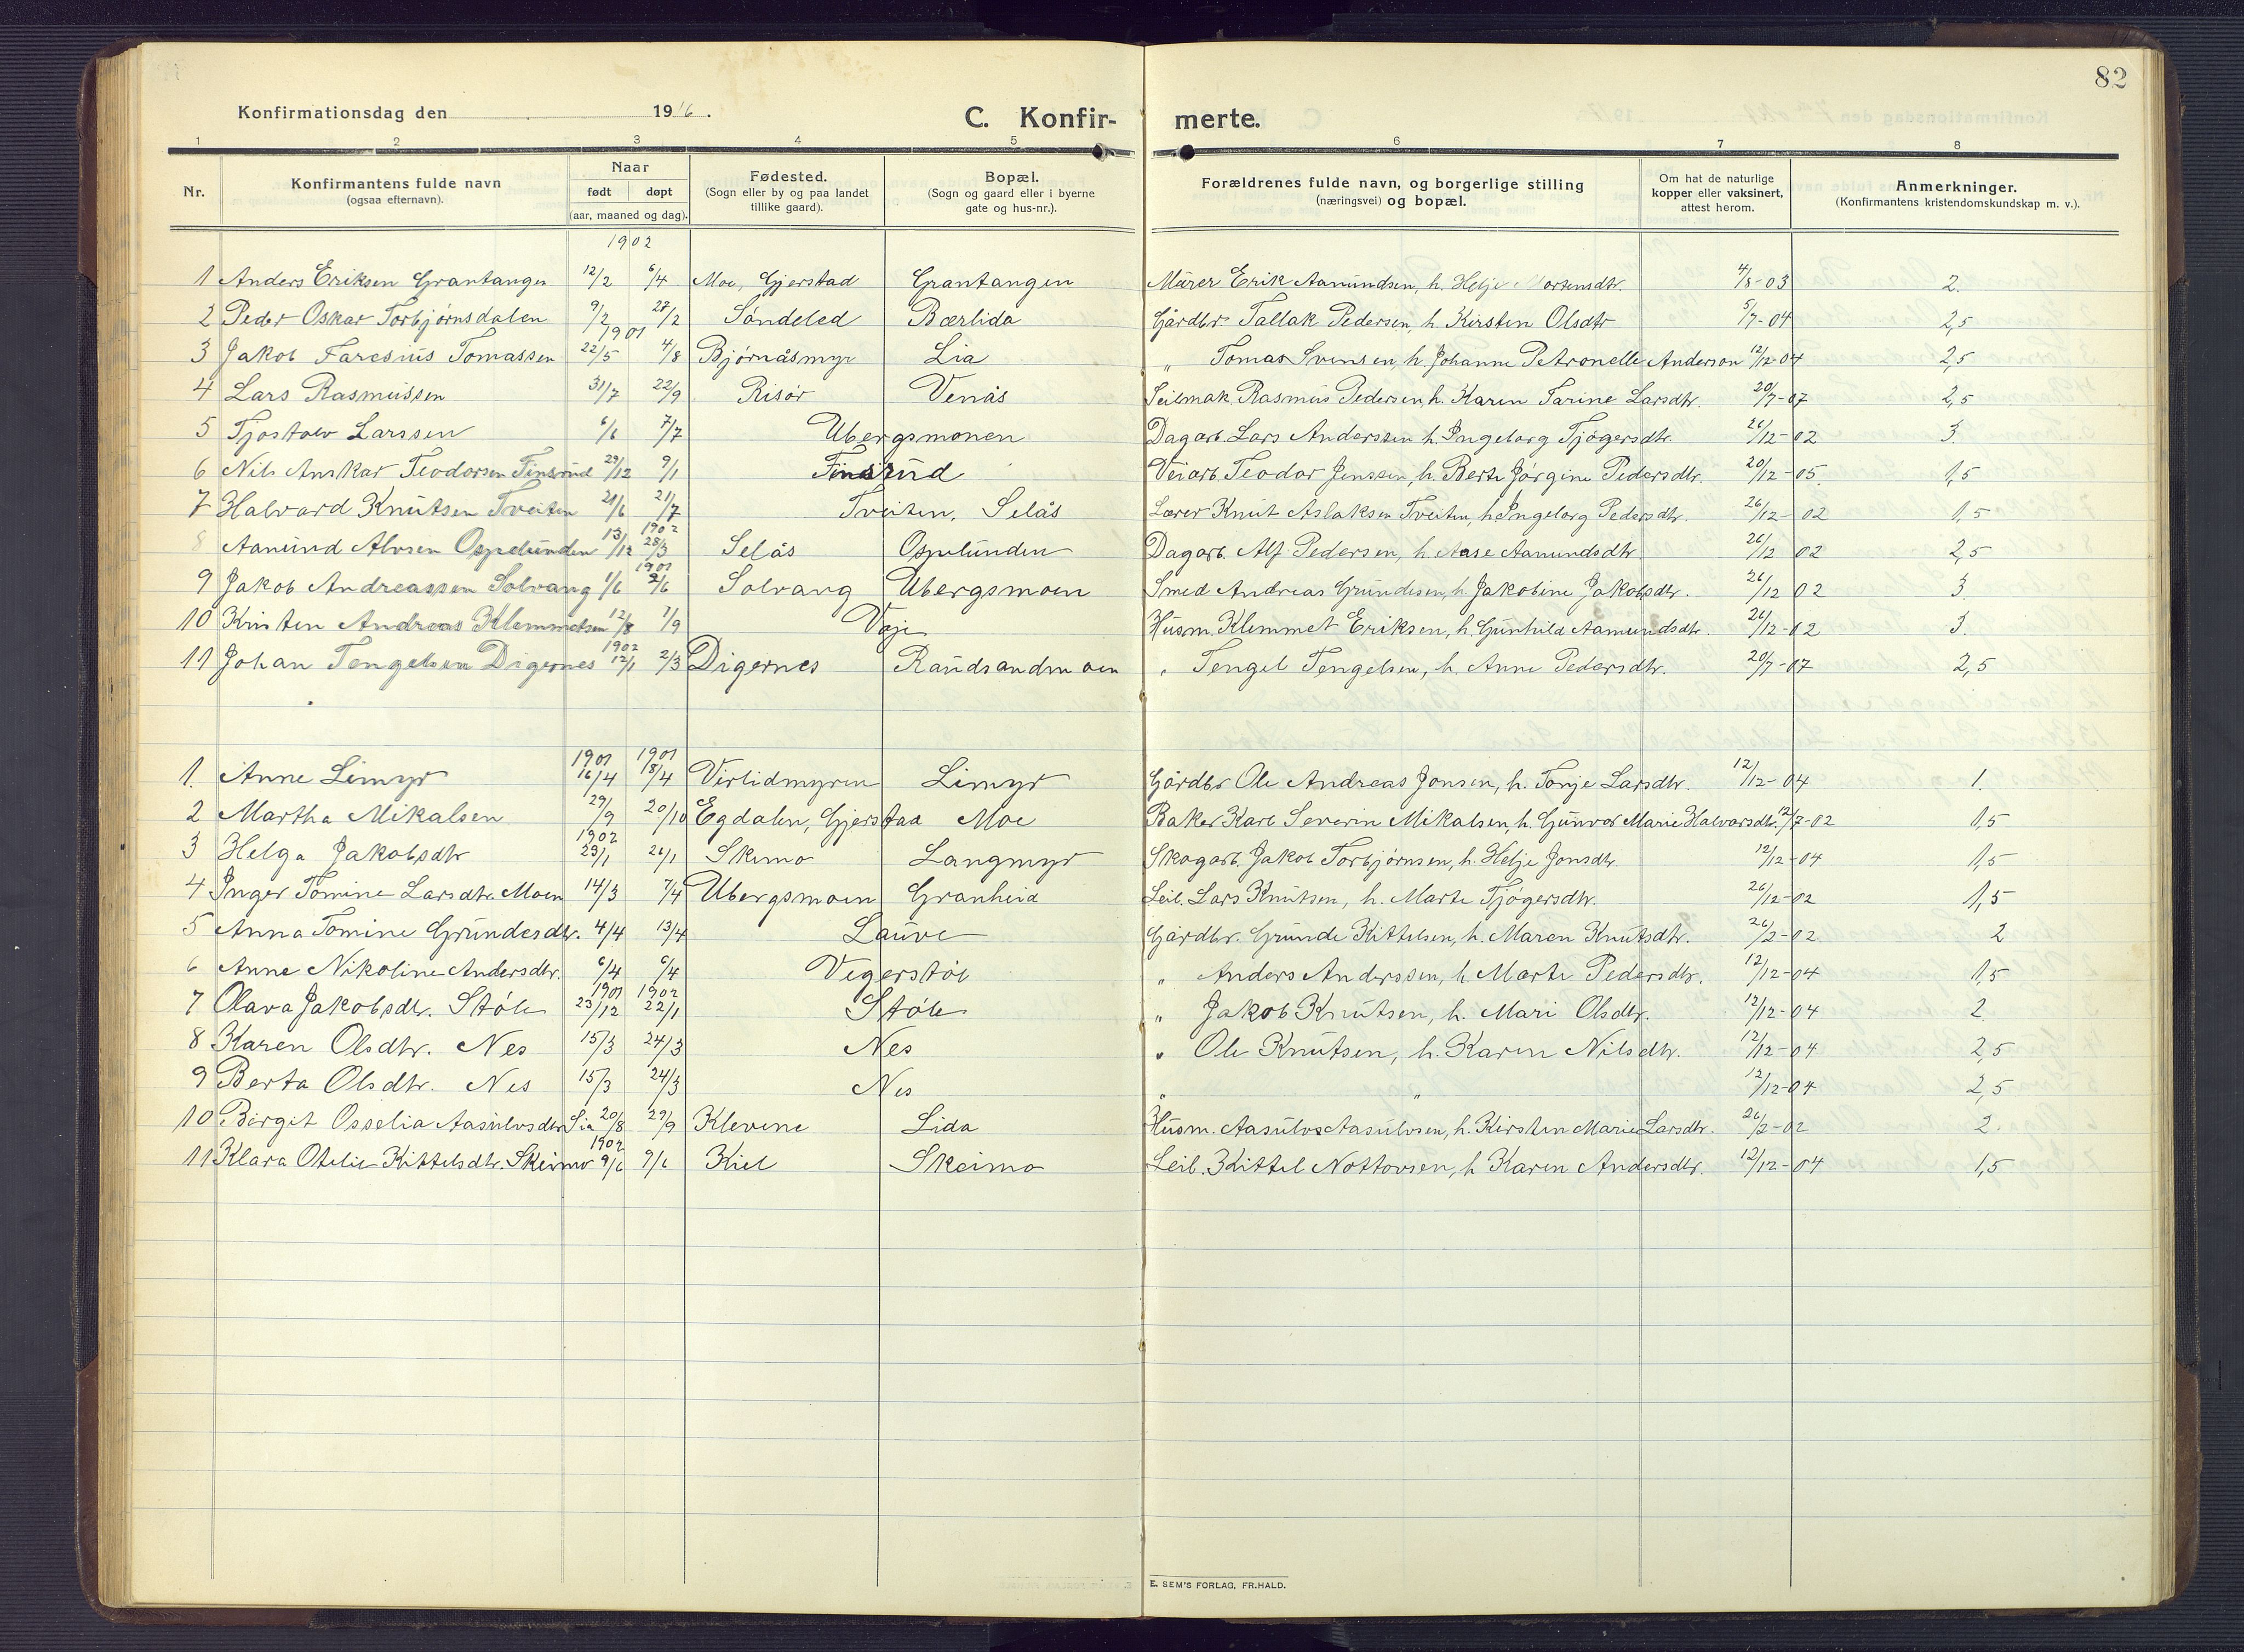 82
Konfirmationsdag den 1916.
C. Konfirmerte.
1 2 3 4 5 6 7 8
Nr.
Konfirmantens fulde navn
(ogsaa efternavn).
Naar
født døpt
(aar, maaned og dag).
Fødested.
(Sogn eller by og paa landet
tillike gaard).
Bopæl.
(Sogn og gaard eller i byerne
gate og hus-nr.).
Forældrenes fulde navn, og borgerlige stilling
(næringsvei) og bopæl.
Om hat de naturlige
kopper eller vaksinert,
attest herom.
Anmerkninger.
(Konfirmantens kristendomskundskap m. v.).
1902
1 Anders Eriksen Grantangen 12/2 6/4 Moe, Gjerstad Grantangen Mürer Erik Aanundsen, h. Helje Mortensdtr. 4/8-03 2.
2 Peder Oskar Torbjørnsdalen 9/2 27/2 Søndeled Bærlida Gårdbr. Tallak Pedersen, h. Kirsten Olsdtr 5/7-04 2,5
1901
3 Jakob Faresius Tomassen 22/5 4/8 Bjørnåsmyr Lia " Tomas Svensen, h. Johanne Petronelle Anderson 12/12-04 2,5
4 Lars Rasmussen 31/7 22/9 Risør Venås Seilmak. Rasmus Pedersen, h. Karen Tarine Larsdtr. 20/7-07 2,5
5 Tjostolv Larssen 6/6 7/7 Ubergsmonen Dagarb. Lars Anderssen h. Ingeborg Tjøgersdtr. 26/12-02 3.
6 Nils Anskar Teodorsen Finsrud 29/12 9/1 Finsrud Veiarb. Teodor Jenssen, h. Berte Jørgine Pedersdtr. 20/12-05. 1,5
7 Halvard Knutsen Tveiten 21/6 21/7 Tveiten, Selås Lærer Knut Aslaksen Tveiten, h. Ingeborg Pedersdtr. 26/12-02 1,5
1902
8 Aanund Alvsen Ospelunden 13/12 28/3 Selås Ospelunden Dagarb. Alf Pedersen, h. Aase Aanundsdtr. 26/12 02 2,5
1901
9 Jakob Andreassen Solvang 1/6 2/6 Solvang Ubergsmoen Smed Andreas Grundesen, h. Jakobine Jakobsdtr. 26/12 02 3.
10 Kristen Andreas Klemmetsen 12/8 1/9 Vaje Husm. Klemmet Eriksen, h. Gunhild Aamundsdtr. 26/12-02 3.
1902
11 Johan Tengelsen Digernes 12/1 2/3 Digernes Raudsandmoen " Tengel Tengelsen, h. Anne Pedersdtr. 20/7-07 2,5
1901 1901
1. Anne Limyr 16/4 18/4 Virlidmyren Limyr Gårdbr Ole Andreas Jonsen, h. Tonje Larsdtr. 12/12-04 1.
2 Martha Mikalsen 29/9 20/10 Egdalen, Gjerstad Moe Baker Karl Severin Mikalsen, h. Gunvor Marie Halvorsdtr. 12/7-02 1,5
1902
3 Helga Jakobsdtr 23/1 26/1 Skimo Langmyr Skogarb. Jakob Torbjørnsen, h. Helje Jonsdtr. 12/12-04 1,5
4 Inger Tomine Larsdtr. Moen 14/3 7/4 Ubergsmoen Granheia Leil. Lars Knutsen, h. Marte Tjøgersdtr. 26/12-02 1,5
5 Anna Tomine Grundesdtr. 4/4 13/4 Lauve Gårdbr. Grunde Kittelsen, h. Maren Knutsdtr. 26/2-02 2
6 Anne Nikoline Andersdtr. 6/4 6/4 Vegerstøl " Anders Anderssen, h. Marte Pedersdtr. 12/12-04 1,5
1901 1902
7 Olava Jakobsdtr. Støle 23/12 22/1 Støle " Jakob Knutsen, h. Mari Olsdtr. 12/12-04 2
8 Karen Olsdtr. Nes 15/3 24/3 Nes " Ole Knutsen, h. Karen Nilsdtr. 12/12-04 2,5
9 Berta Olsdtr. Nes 15/3 24/3 Nes " " 12/12-04 2,5
10 Birgit Osselia Aasulvsdtr Lia 20/8 29/9 Klevene Lida Husm. Aasulv Aasulvsen, h. Kirsten Marie Larsdtr. 26/2-02 2.
1902
11 Klara Otelie Kittelsdtr. Skeimo 9/6 9/6 Kiel Skeimo Leil. Kittel Nottovsen, h Karen Andersdtr. 12/12-04 1,5
E. SEM'S FORLAG, FR.HALD.